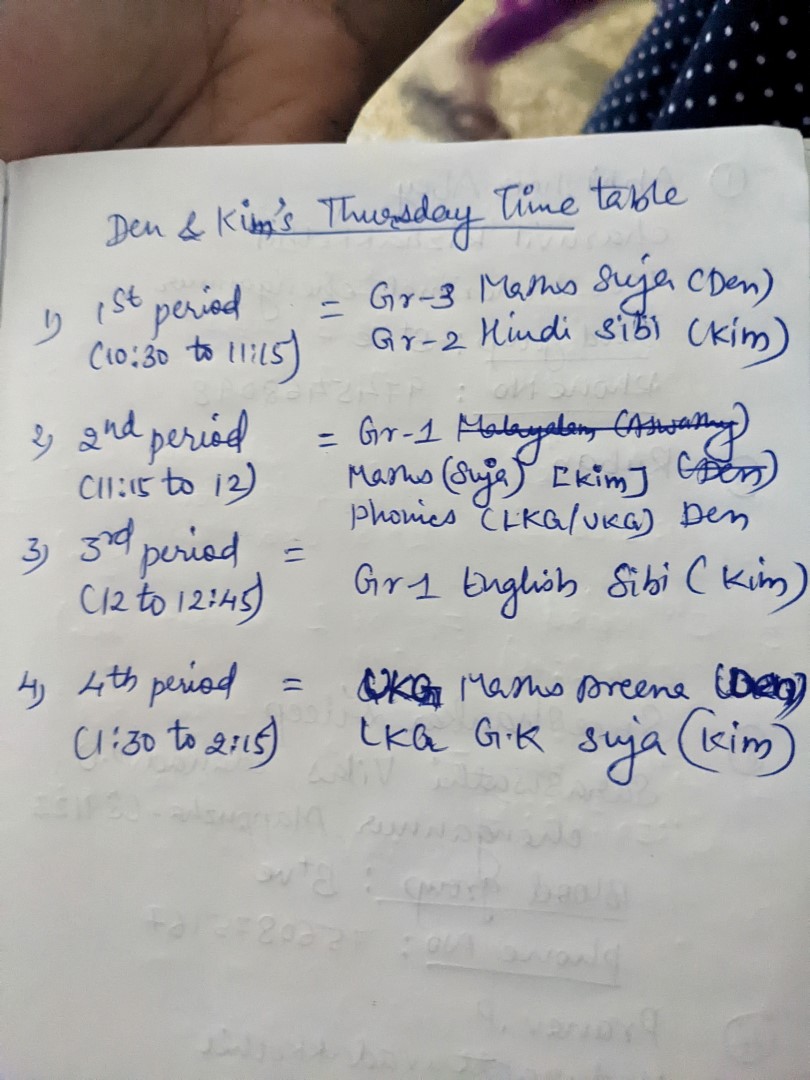 Den & Kim's Thursday Time table
1) 1st period = Gr-3 Maths Suja (Den)
(10:30 to 11:15) Gr-2 Hindi Sibi (Kim)
2) 2nd period = Gr-1 Malayalam (Aswathy)
(11:15 to 12) Maths (Suja) [Kim] (Den)
Phonics (LKG/UKG) Den
3) 3rd period =
(12 to 12:45) Gr-1 English Sibi (Kim)
4) 4th period = UKG Maths Preena (Den)
(1:30 to 2:15) LKG G.K Suja (Kim)